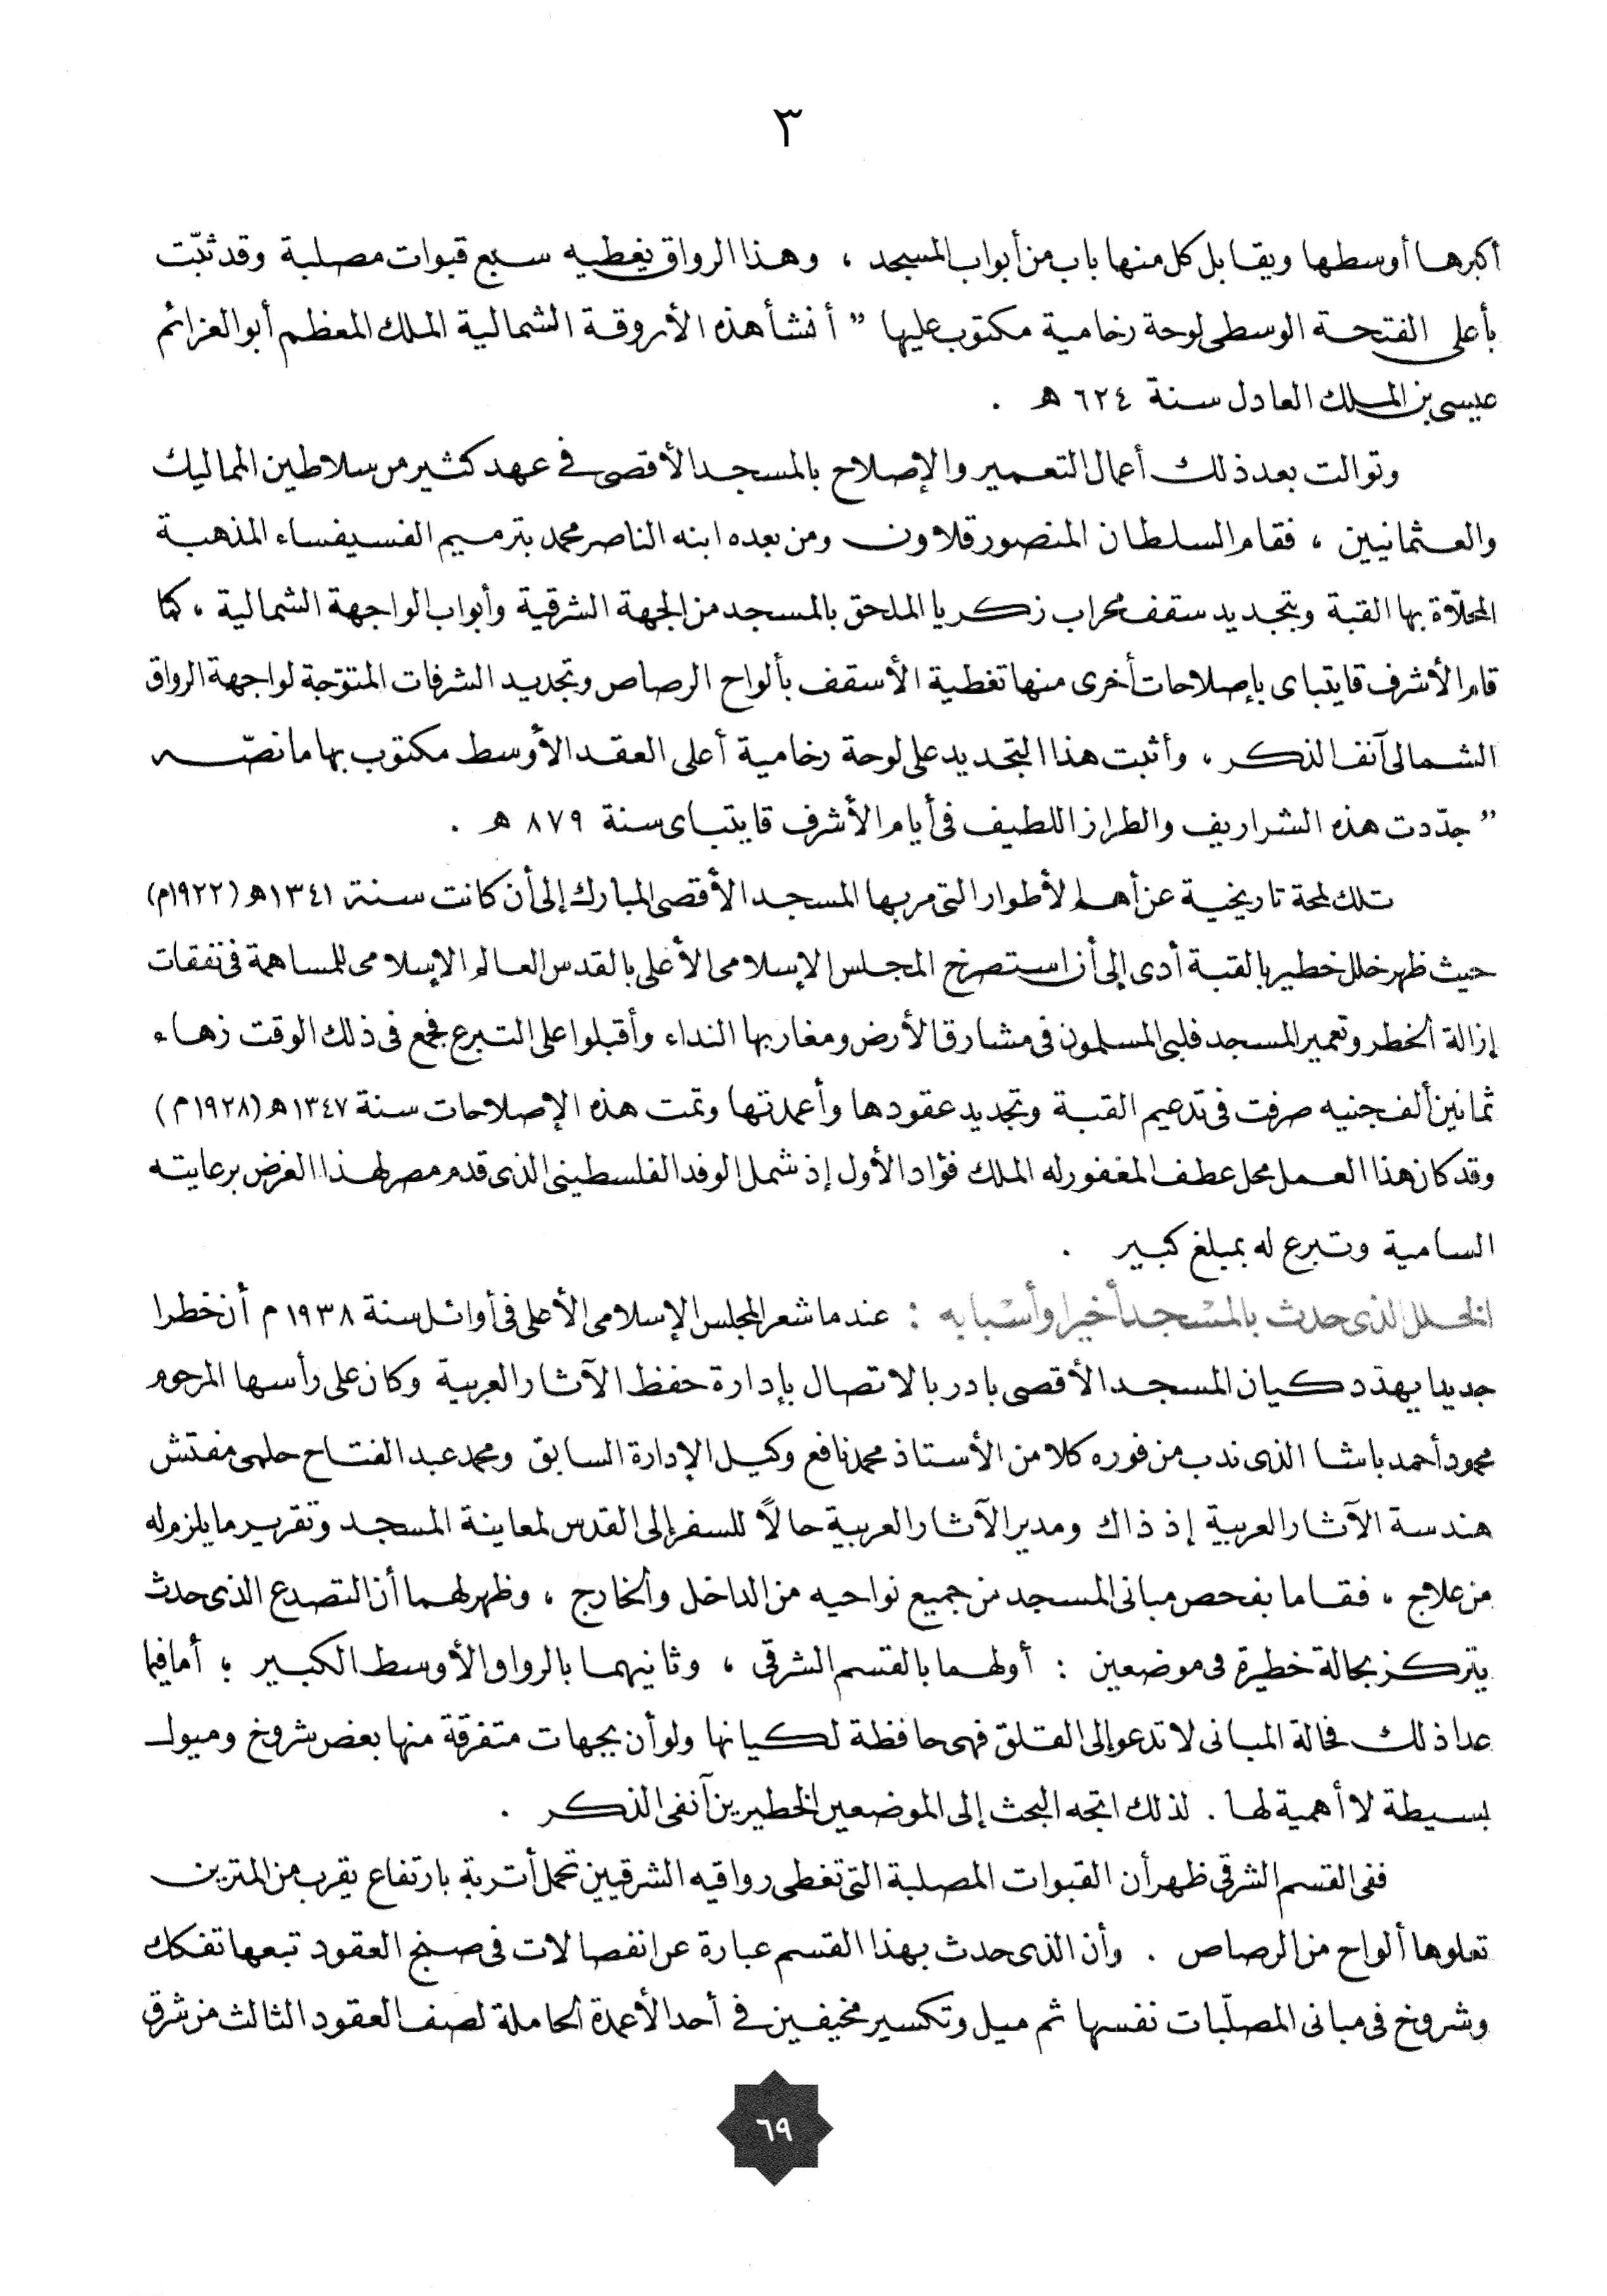 ٣
أكبرها أوسطها ويقابل كل منها باب من أبواب المسجد ، وهذا الرواق يغطيه سبع قبوات مصلبة وقد ثبّت
بأعلى الفتحة الوسطى لوحة رخامية مكتوب عليها " أنشأ هذه الأروقة الشمالية الملك المعظم أبو العزائم
عيسى بن الملك العادل سنة ٦٢٤ هـ .
وتوالت بعد ذلك أعمال التعمير والإصلاح بالمسجد الأقصى في عهد كثير من سلاطين المماليك
والعثمانيين ، فقام السلطان المنصور قلاون ومن بعده ابنه الناصر محمد بترميم الفسيفساء المذهبة
المحلاّة بها القبة وبتجديد سقف محراب زكريا الملحق بالمسجد من الجهة الشرقية وأبواب الواجهة الشمالية ، كما
قام الأشرف قايتباى بإصلاحات أخرى منها تغطية الأسقف بألواح الرصاص وتجديد الشرفات المتوّجة لواجهة الرواق
الشمالى آنف الذكر ، وأثبت هذا التجديد على لوحة رخامية أعلى العقد الأوسط مكتوب بها ما نصّه
" جدّدت هذه الشراريف والطراز اللطيف فى أيام الأشرف قايتباى سنة ٨٧٩ هـ .
تلك لمحة تاريخية عن أهم الأطوار التى مر بها المسجد الأقصى المبارك إلى أن كانت سنة ١٣٤١ هـ (١٩٢٢م)
حيث ظهر خلل خطير بالقبة أدى إلى أن استصرخ المجلس الإسلامى الأعلى بالقدس العالم الإسلامى للمساهمة فى نفقات
إزالة الخطر وتعمير المسجد فلبى المسلمون فى مشارق الأرض ومغاربها النداء وأقبلوا على التبرع فجمع فى ذلك الوقت زهاء
ثمانين ألف جنيه صرفت فى تدعيم القبة وتجديد عقودها وأعمدتها وتمت هذه الإصلاحات سنة ١٣٤٧ هـ (١٩٢٨م)
وقد كان هذا العمل محل عطف المغفور له الملك فؤاد الأول إذ شمل الوفد الفلسطينى الذى قدم مصر لهذا الغرض برعايته
السامية وتبرع له بمبلغ كبير .
الخلل الذى حدث بالمسجد أخيرا وأسبابه : عندما شعر المجلس الإسلامى الأعلى فى أوائل سنة ١٩٣٨ م أن خطرا
جديدا يهدّد كيان المسجد الأقصى بادر بالاتصال بإدارة حفظ الآثار العربية وكان على رأسها المرحوم
محمود أحمد باشا الذى ندب من فوره كلا من الأستاذ محمد نافع وكيل الإدارة السابق ومحمد عبد الفتاح حلمى مفتش
هندسة الآثار العربية إذ ذاك ومدير الآثار العربية حالاً للسفر إلى القدس لمعاينة المسجد وتقرير ما يلزم له
من علاج ، فقاما بفحص مبانى المسجد من جميع نواحيه من الداخل والخارج ، وظهر لهما أن التصدع الذى حدث
يتركز بحالة خطيرة فى موضعين : أولهما بالقسم الشرقى ، وثانيهما بالرواق الأوسط الكبير ؛ أما فيما
عدا ذلك فحالة المبانى لا تدعو إلى القلق فهى حافظة لكيانها ولو أن بجهات متفرقة منها بعض شروخ وميول
بسيطة لا أهمية لها . لذلك اتجه البحث إلى الموضعين الخطيرين آنفى الذكر .
ففى القسم الشرقى ظهر أن القبوات المصلبة التى تغطى رواقيه الشرقيين تحمل أتربة بارتفاع يقرب من المترين
تعلوها ألواح من الرصاص . وأن الذى حدث بهذا القسم عبارة عن انفصالات فى صنج العقود تبعها تفكك
وشروخ فى مبانى المصلّبات نفسها ثم ميل وتكسير مخيفين في أحد الأعمدة الحاملة لصف العقود الثالث من شرق
٦٩